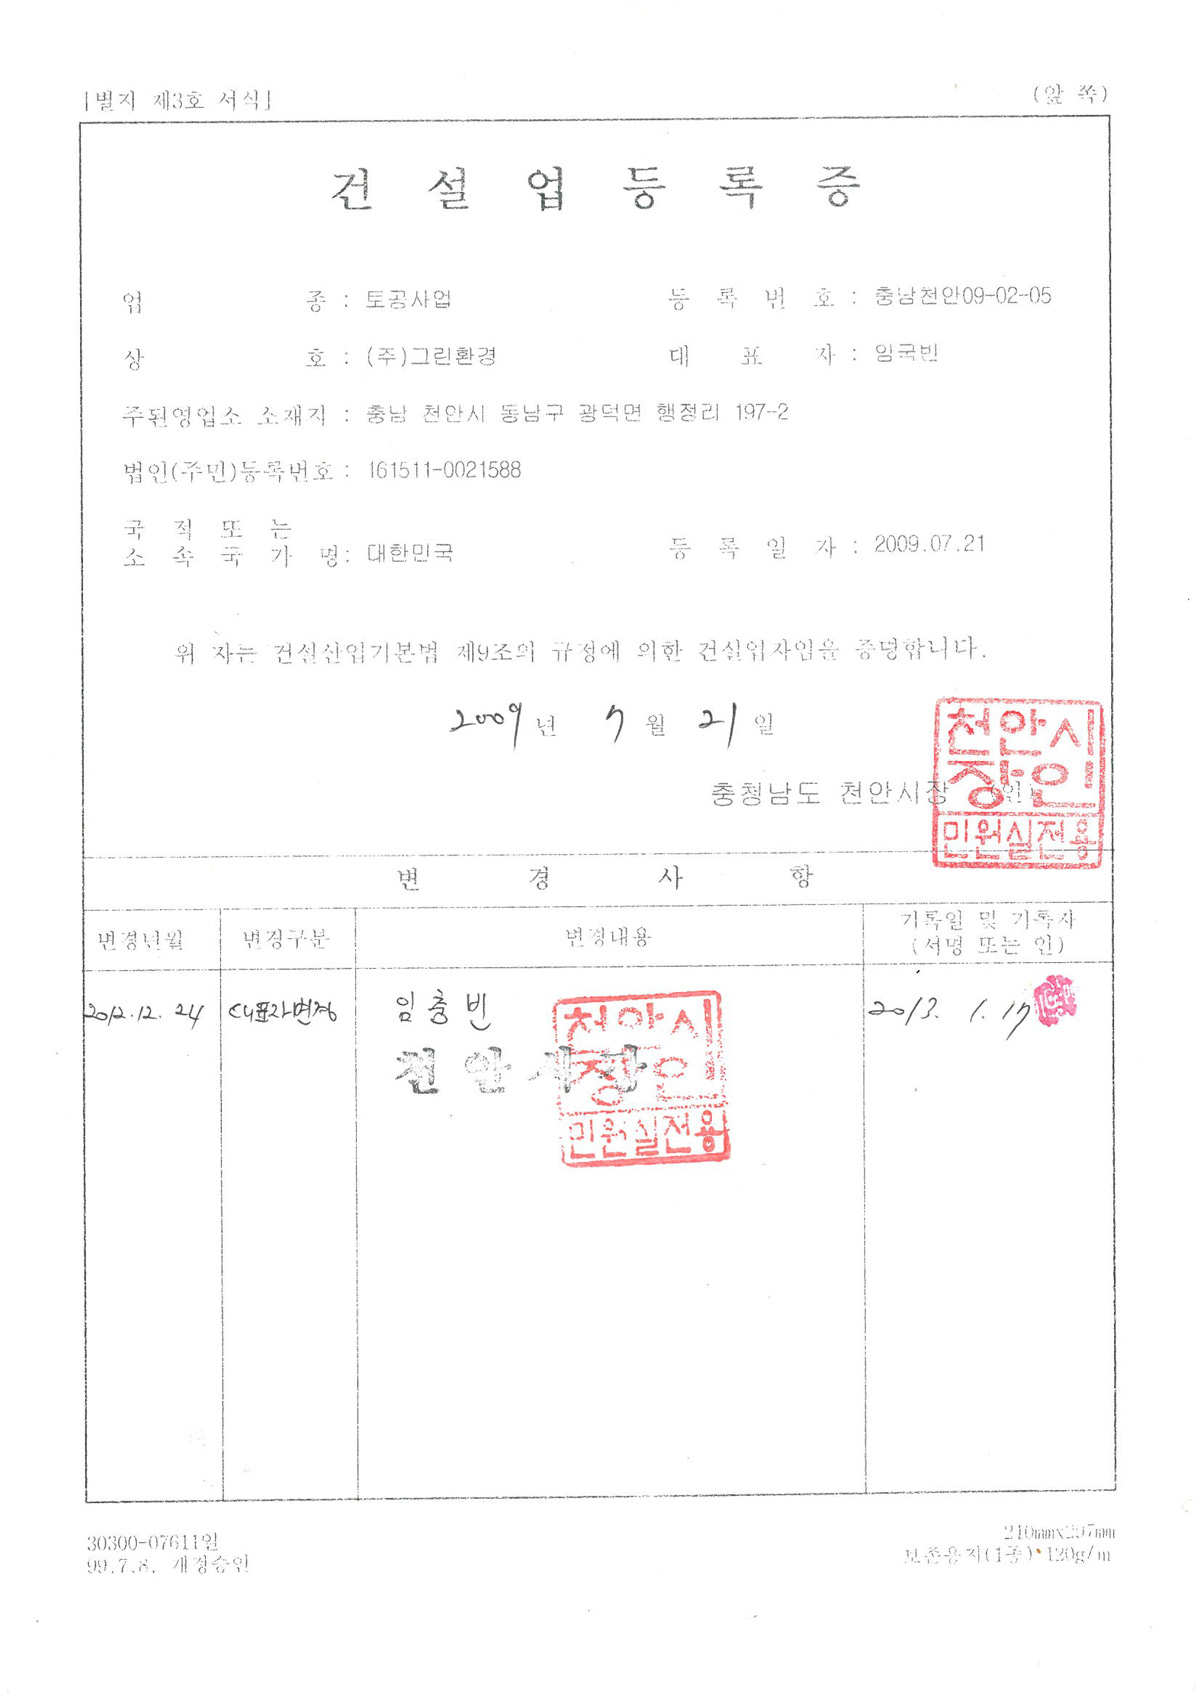 [별지 제3호 서식]
(앞 쪽)
건 설 업 등 록 증
업 종 : 토공사업
등 록 번 호 : 충남천안09-02-05
상 호 : (주)그린환경
대 표 자 : 임국빈
주된영업소 소재지 : 충남 천안시 동남구 광덕면 행정리 197-2
법인(주민)등록번호 : 161511-0021588
국 적 또 는
소 속 국 가 명 : 대한민국
등 록 일 자 : 2009.07.21
위 자는 건설산업기본법 제9조의 규정에 의한 건설업자임을 증명합니다.
2009년 7월 21일
충청남도 천안시장 (인)
천안시
장인
민원실전용
변 경 사 항
변경년월
변경구분
변경내용
기록일 및 기록자
(서명 또는 인)
2012.12.24
대표자변경
임충빈
2013. 1. 17
천안시장
천안시
장인
민원실전용
30300-07611일
99.7.8. 개정승인
210mm×297mm
보존용지(1종) 120g/m